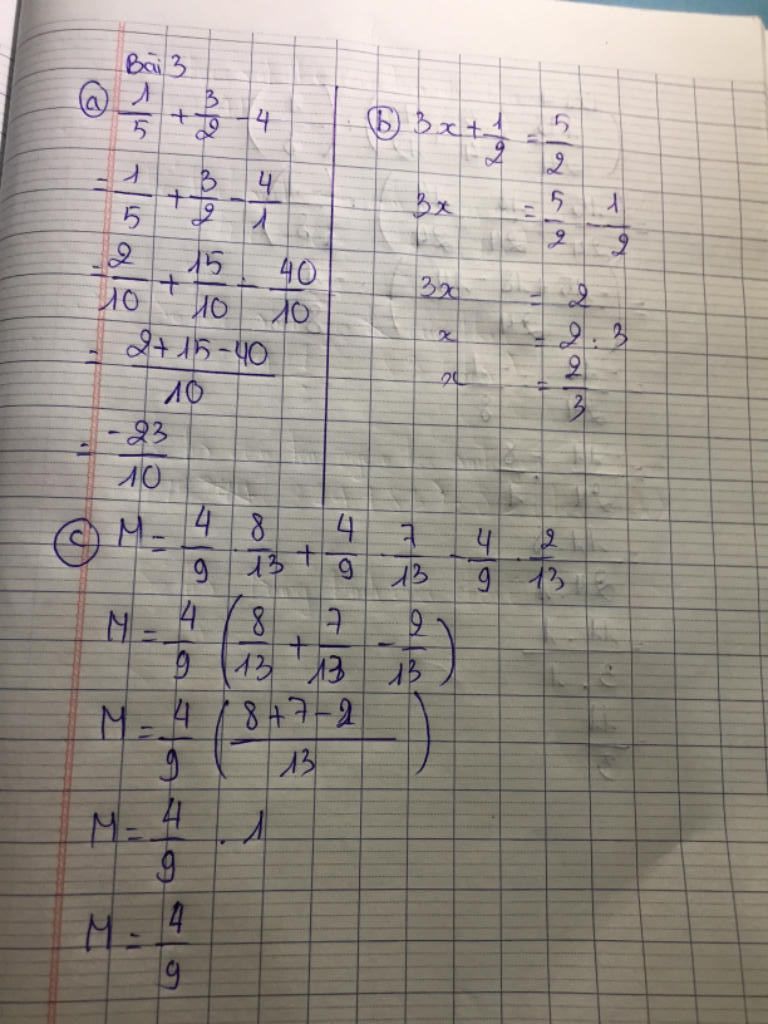 Bài 3
a) 1/5 + 3/2 - 4
= 1/5 + 3/2 - 4/1
= 2/10 + 15/10 - 40/10
= (2+15-40)/10
= -23/10
b) 3x + 1/2 = 5/2
3x = 5/2 - 1/2
3x = 2
x = 2 : 3
x = 2/3
c) M = 4/9 . 8/13 + 4/9 . 7/13 - 4/9 . 2/13
M = 4/9 (8/13 + 7/13 - 2/13)
M = 4/9 ((8+7-2)/13)
M = 4/9 . 1
M = 4/9